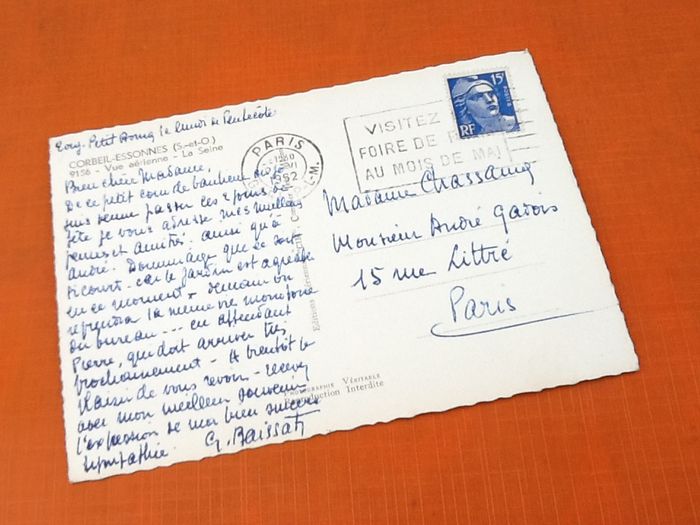 Petit Bourg le lundi de Pentecôte
CORBEIL-ESSONNES (S.-et-O.)
9156 - Vue aérienne - La Seine
Bien chère Madame,
De ce petit coin de banlieue où je
suis venu passer ces 2 jours de
fête je vous adresse mes meilleures
pensées et amitiés. ainsi qu'à
andré. Dommage que ce soit
si court - car le jardin est agréable
en ce moment - demain on
reprendra la même vie monotone
du bureau --- en attendant
Pierre, qui doit arriver très
prochainement - A bientôt le
plaisir de vous revoir - recevez
avec mon meilleur souvenir
l'expression de ma bien sincère
sympathie.
G. Baissat
PARIS
1952
VISITEZ
FOIRE DE
AU MOIS DE MAI
15F
RF
Madame Chassang
Monsieur André Gadois
15 rue Littré
Paris
Editions
PHOTOGRAPHIE VÉRITABLE
Reproduction Interdite